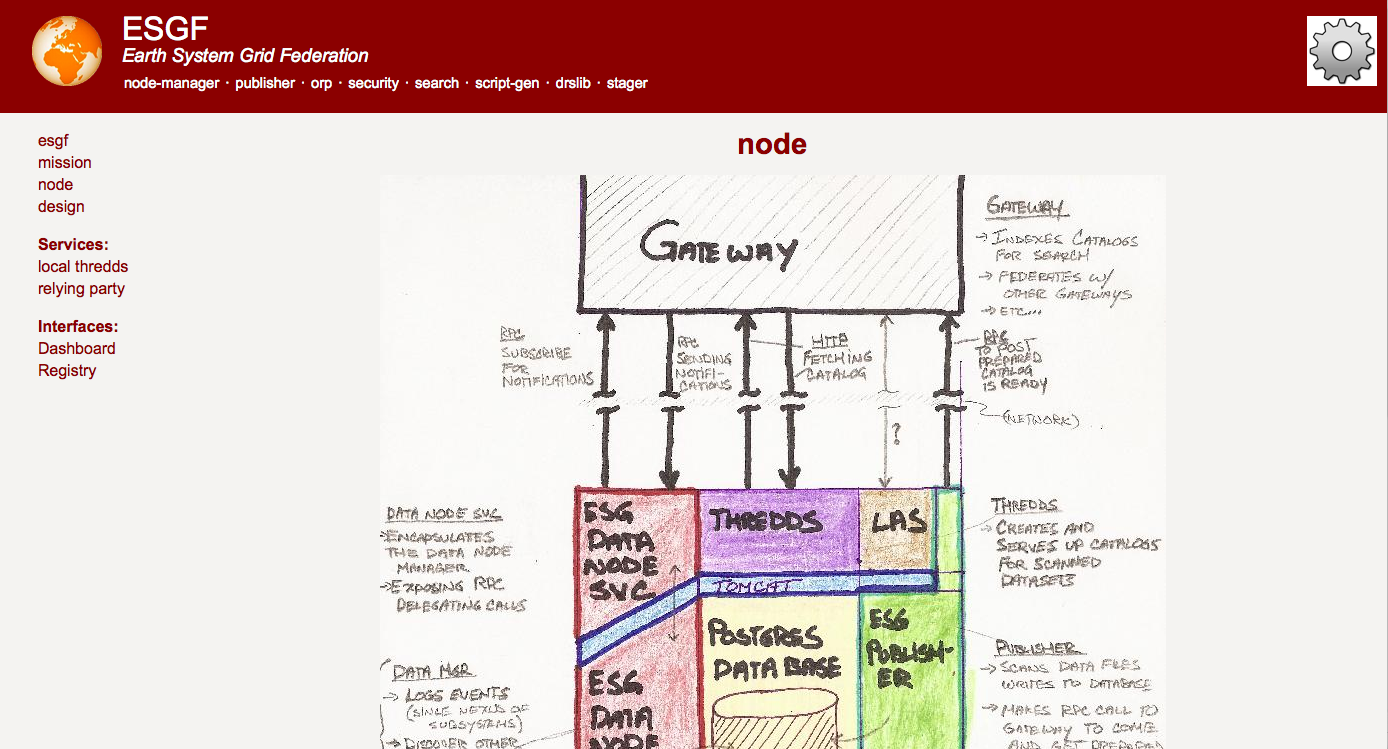 ESGF
Earth System Grid Federation
node-manager · publisher · orp · security · search · script-gen · drslib · stager
esgf
mission
node
design
Services:
local thredds
relying party
Interfaces:
Dashboard
Registry
node
GATEWAY
GATEWAY
→ INDEXES CATALOGS
FOR SEARCH
→ FEDERATES W/
OTHER GATEWAYS
→ ETC...
RPC
SUBSCRIBE
FOR
NOTIFICATIONS
RPC
SENDING
NOTIFI-
CATIONS
HTTP
FETCHING
CATALOG
RPC
TO POST
PREPARED
CATALOG
IS READY
(NETWORK)
?
DATA NODE SVC
→ ENCAPSULATES
THE DATA NODE
MANAGER.
→ EXPOSING RPC
DELEGATING CALLS
ESG
DATA
NODE
SVC.
THREDDS
LAS
TOMCAT
THREDDS
→ CREATES AND
SERVES UP CATALOGS
FOR SCANNED
DATASETS
POSTGRES
DATABASE
ESG
PUBLISH-
ER
PUBLISHER
→ SCANS DATA FILES
WRITES TO DATABASE
→ MAKES RPC CALL TO
GATEWAY TO COME
AND GET PREPARED
DATA MGR
→ LOGS EVENTS
(SINGLE NEXUS OF
SUBSYSTEMS)
→ DISCOVER OTHER
ESG
DATA
NODE